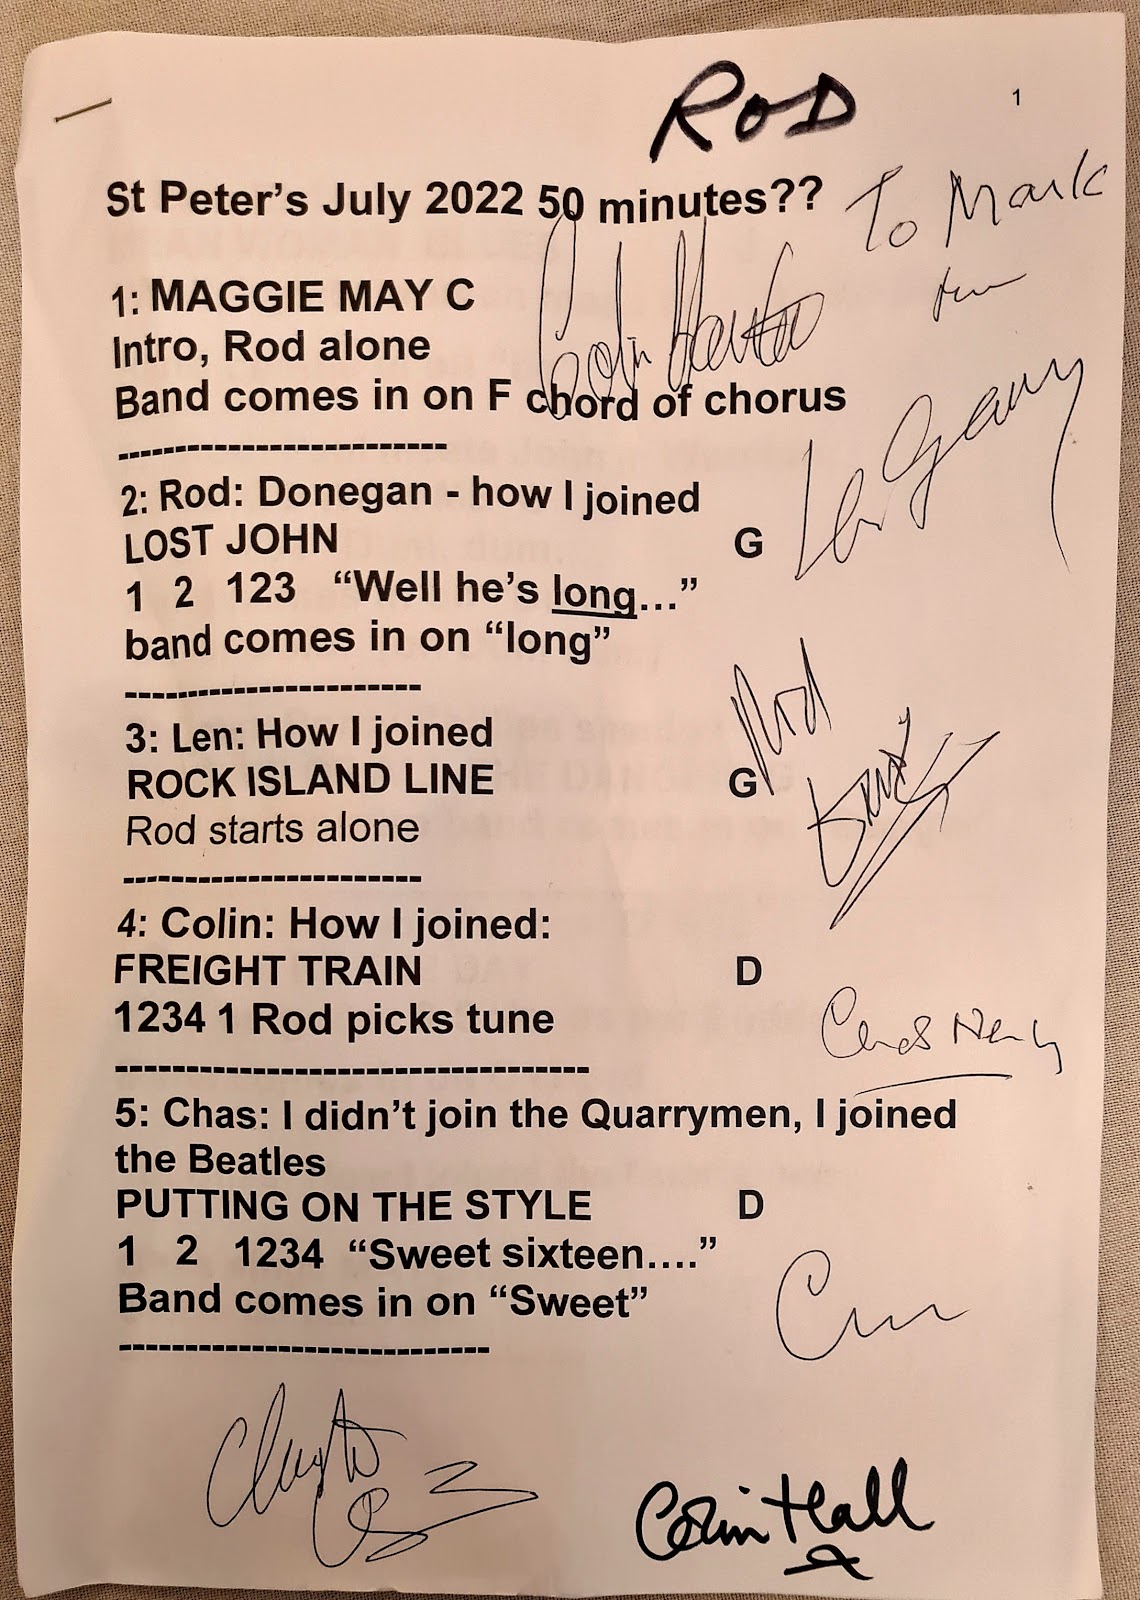 ROD
1
St Peter's July 2022 50 minutes??
To Mark
1: MAGGIE MAY C
Intro, Rod alone
Band comes in on F chord of chorus
Len Garry
---------------------------
2: Rod: Donegan - how I joined
LOST JOHN G
1 2 123 “Well he's long...”
band comes in on “long”
-------------------------
3: Len: How I joined
ROCK ISLAND LINE G
Rod
Rod starts alone
-------------------------
4: Colin: How I joined:
FREIGHT TRAIN D
1234 1 Rod picks tune
----------------------------------------
5: Chas: I didn't join the Quarrymen, I joined
the Beatles
PUTTING ON THE STYLE D
1 2 1234 “Sweet sixteen....”
Band comes in on “Sweet”
-------------------------------
Colin Hall